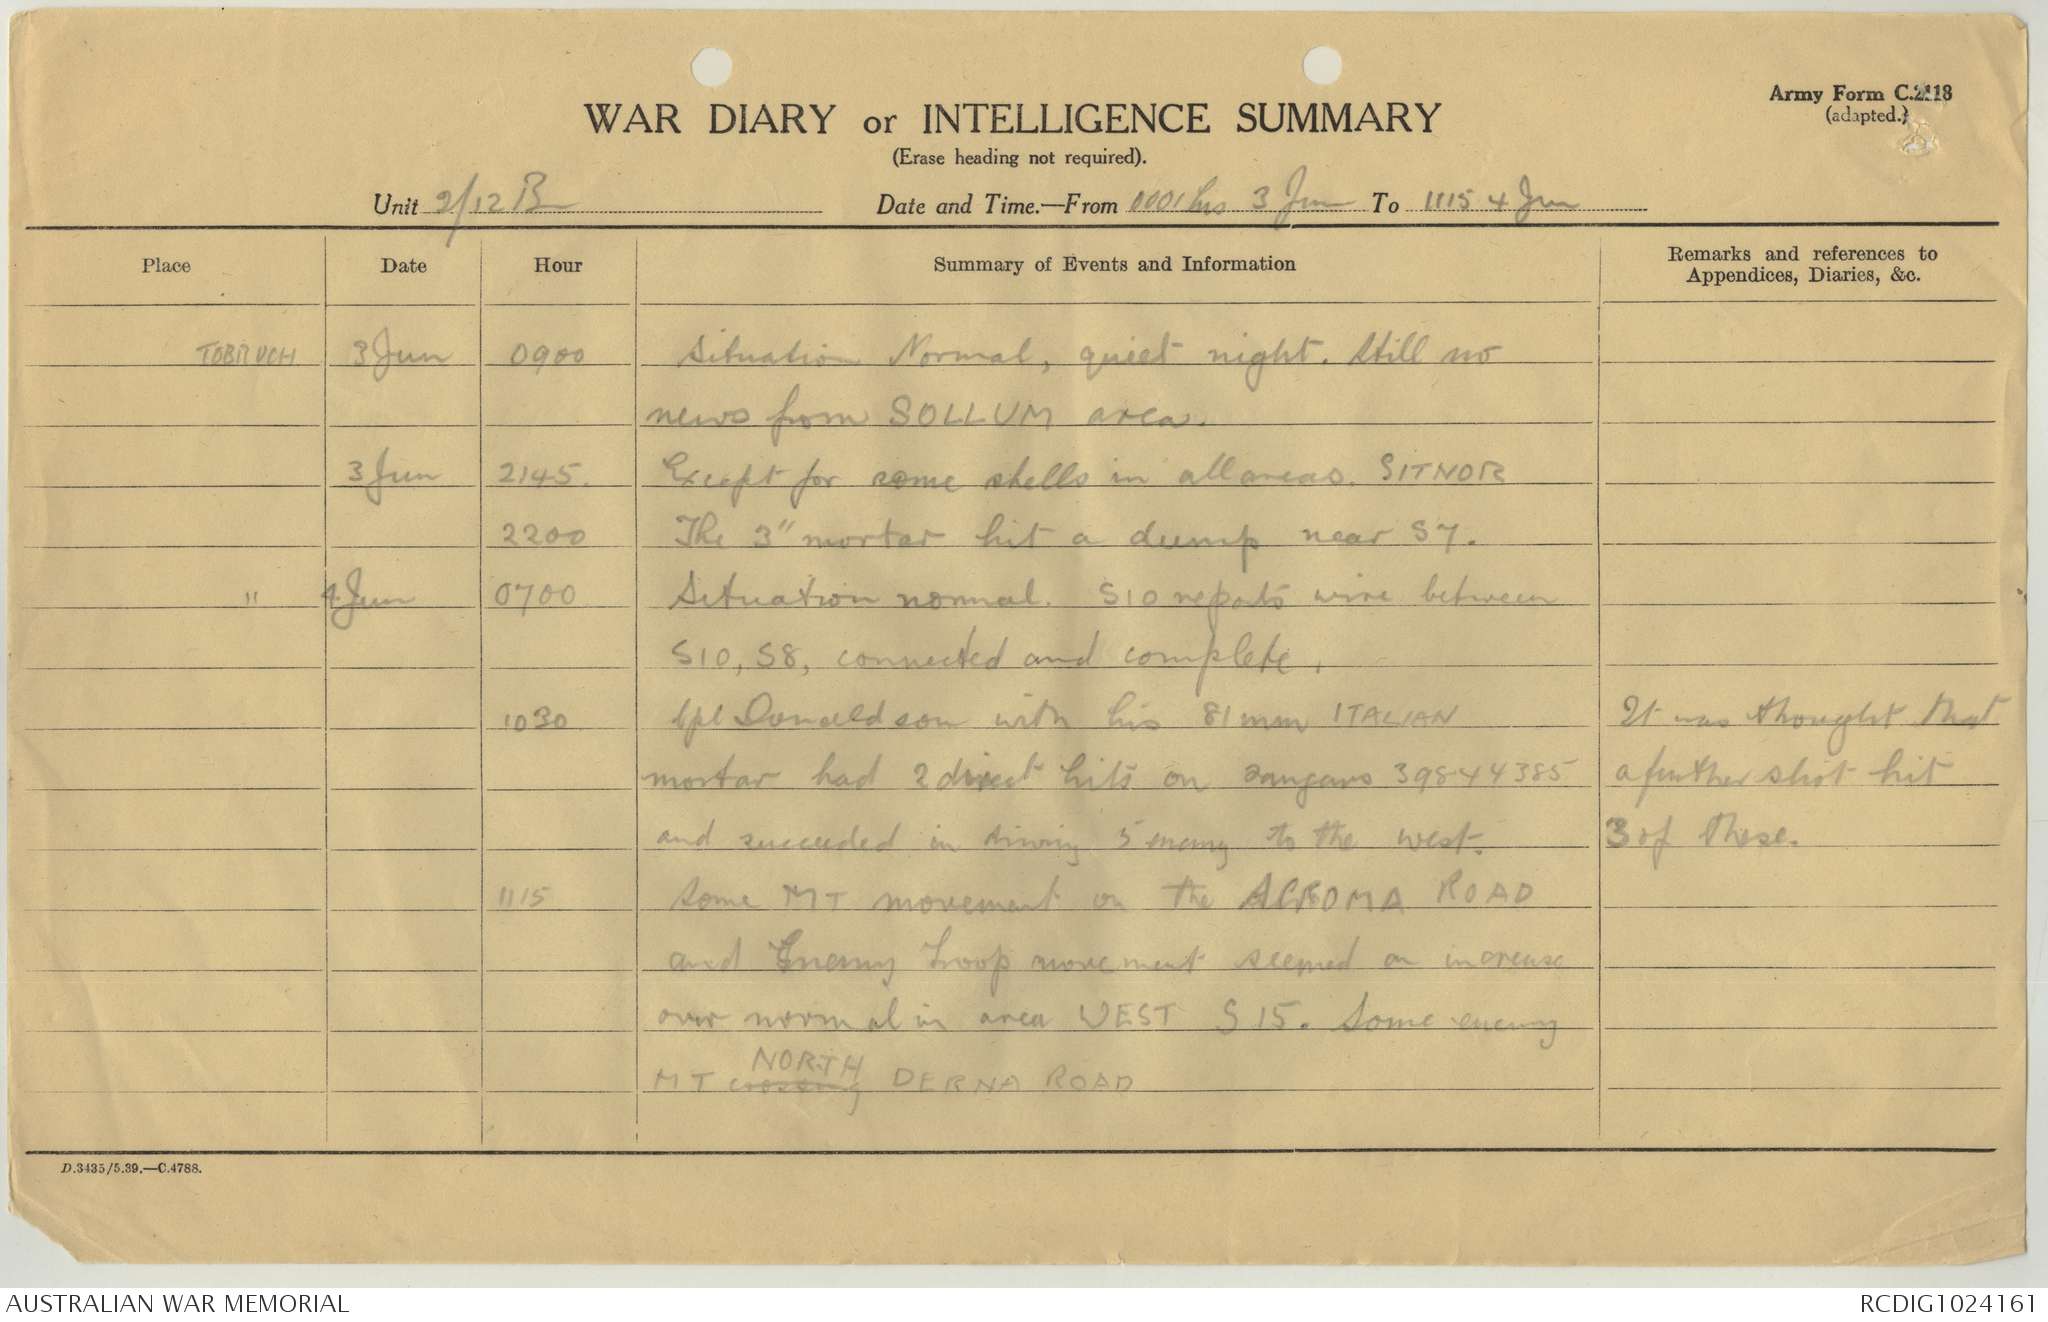 Army Form C.2118
(adapted.)
WAR DIARY or INTELLIGENCE SUMMARY
(Erase heading not required).
Unit 2/12 Bn Date and Time.—From 0001 hrs 3 Jun To 1115 4 Jun
Place Date Hour Summary of Events and Information Remarks and references to
Appendices, Diaries, &c.
TOBRUCH 3 Jun 0900 Situation Normal, quiet night. Still no
news from SOLLUM area.
3 Jun 2145. Except for some shells in all areas. SITNOR
2200 The 3" mortar hit a dump near S7.
" 4 Jun 0700 Situation normal. S10 reports wire between
S10, S8, connected and complete.
1030 Cpl Donaldson with his 81mm ITALIAN It was thought that
mortar had 2 direct hits on sangars 39844385 a further shot hit
and succeeded in driving 5 enemy to the west. 3 of these.
1115 Some MT movement on the ACROMA ROAD
and Enemy Troop movement seemed on increase
over normal in area WEST S15. Some enemy
NORTH
MT crossing DERNA ROAD
D.3435/5.39.—C.4788.
AUSTRALIAN WAR MEMORIAL RCDIG1024161